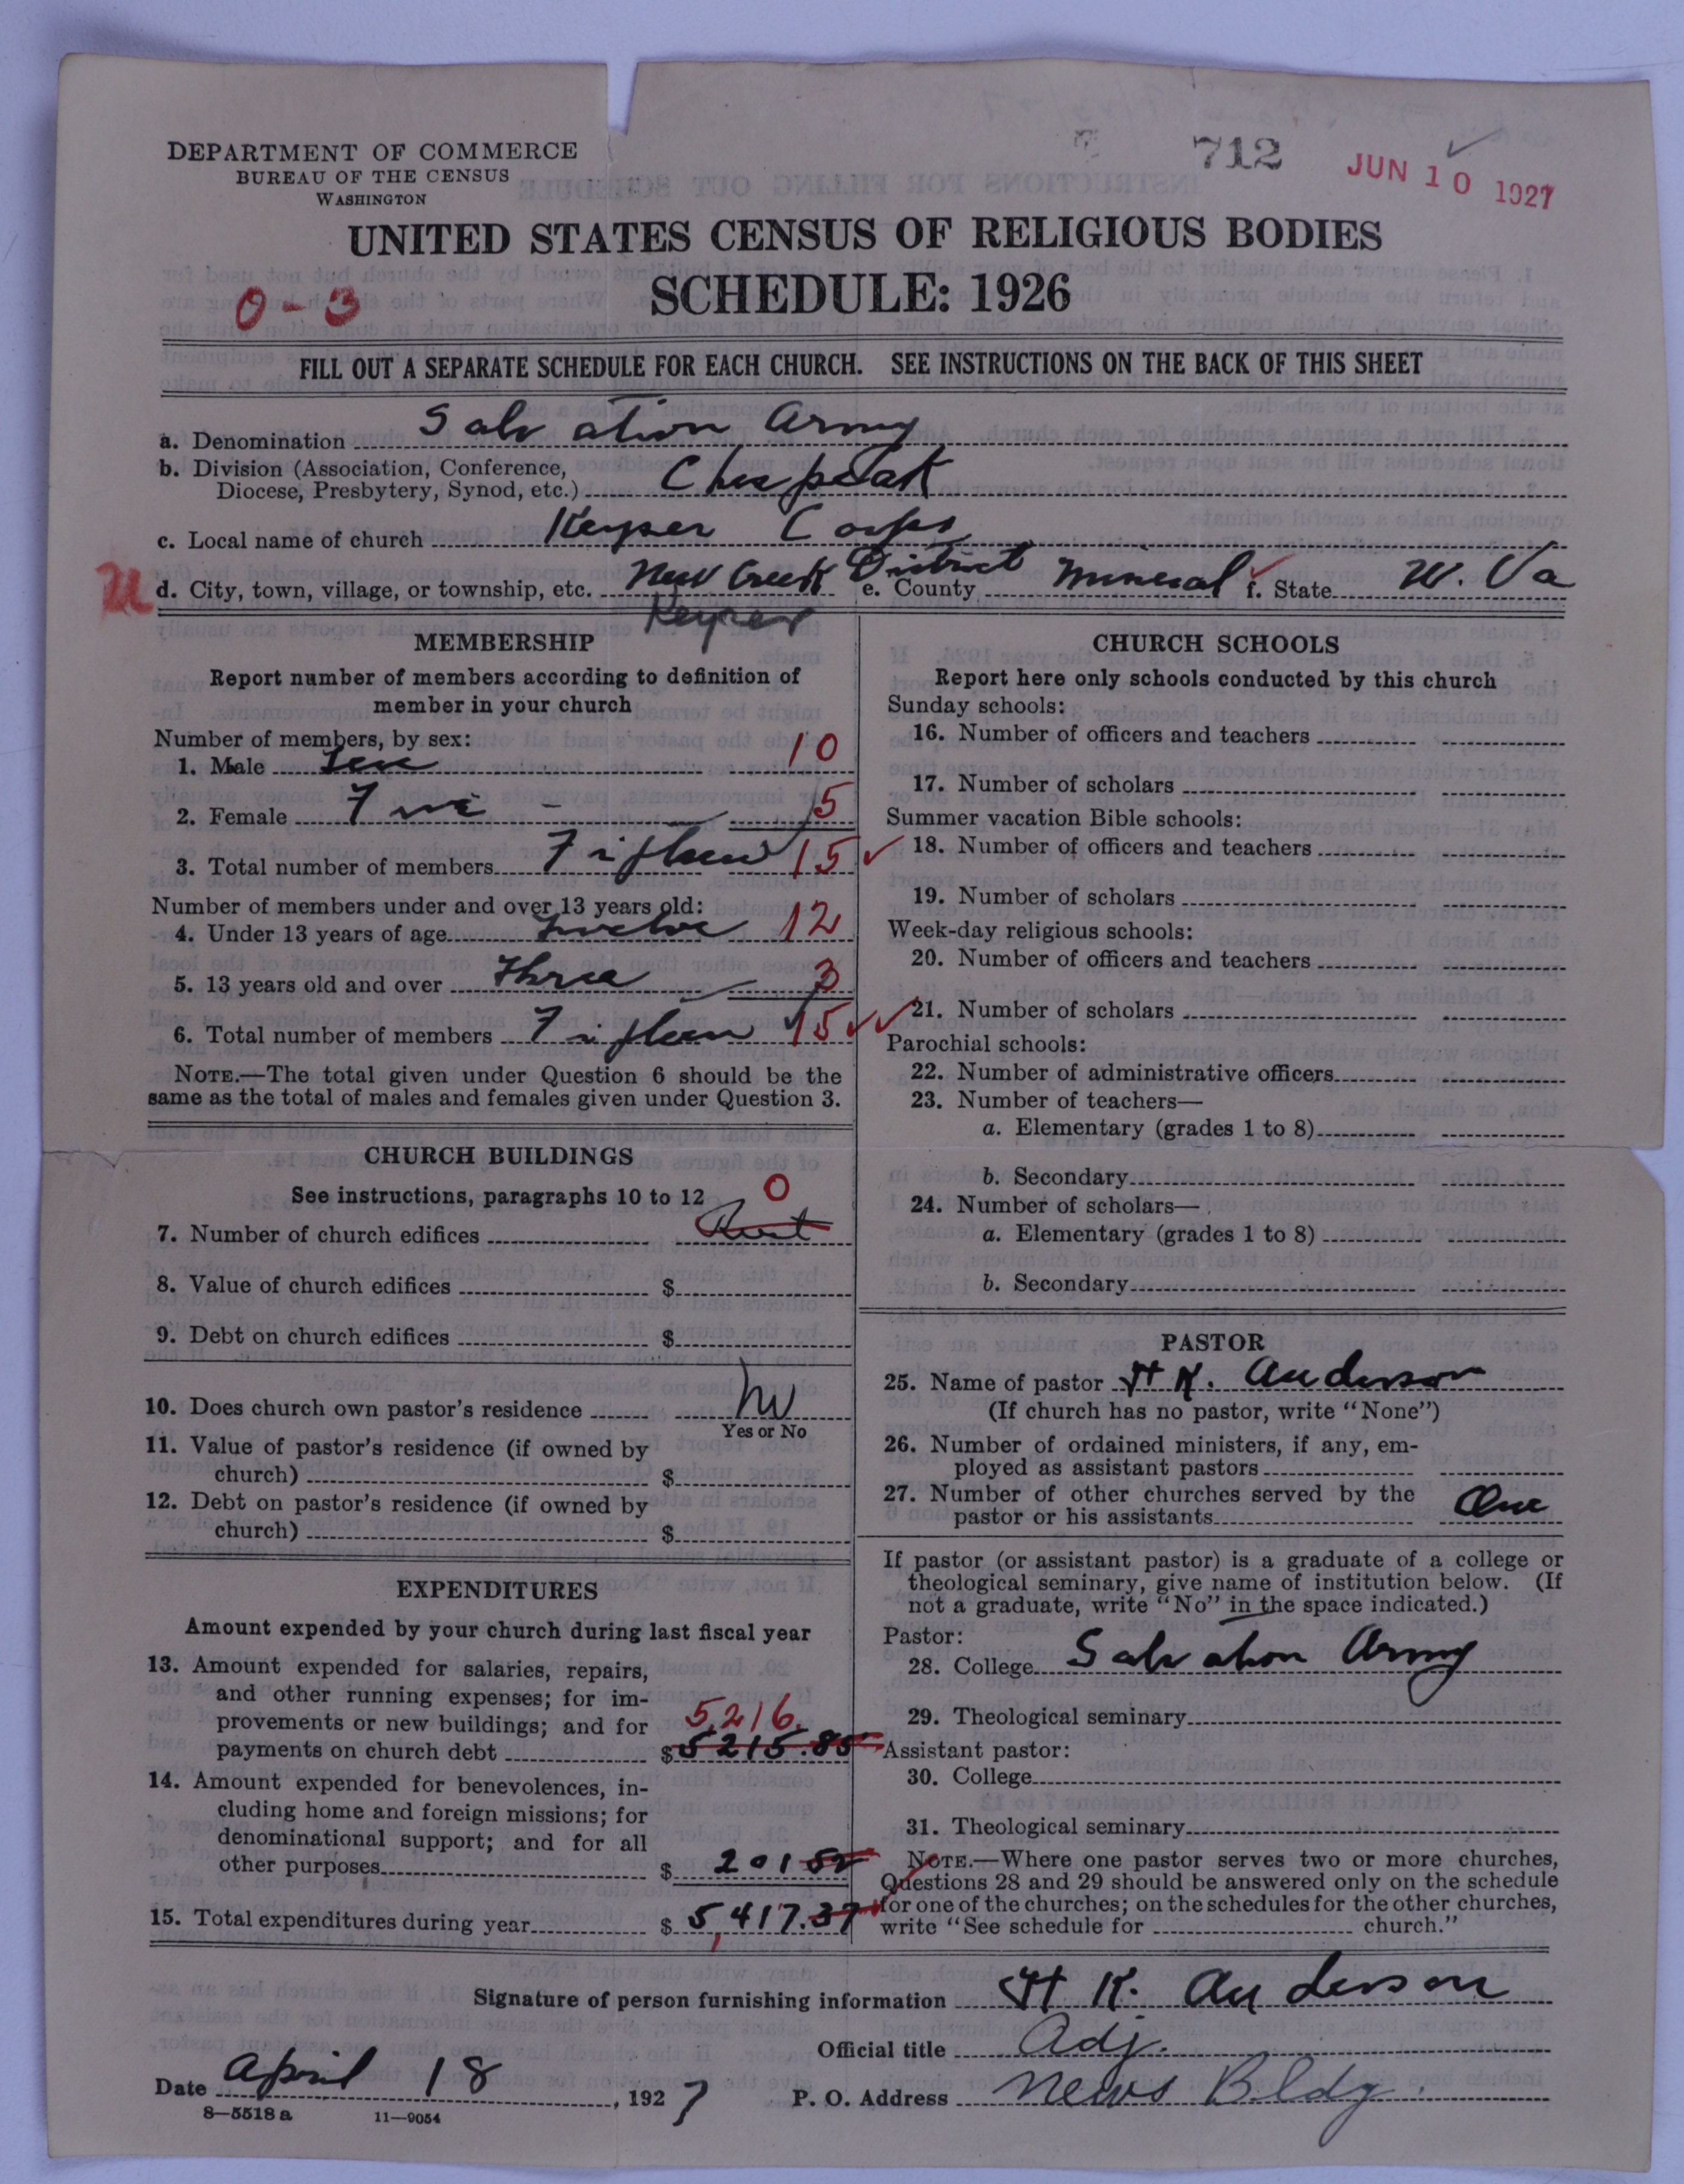 DEPARTMENT OF COMMERCE
BUREAU OF THE CENSUS
WASHINGTON
712
JUN 10 1927
UNITED STATES CENSUS OF RELIGIOUS BODIES
SCHEDULE: 1926
0-3
FILL OUT A SEPARATE SCHEDULE FOR EACH CHURCH. SEE INSTRUCTIONS ON THE BACK OF THIS SHEET
a. Denomination Salvation Army
b. Division (Association, Conference,
Diocese, Presbytery, Synod, etc.) Chespeak
c. Local name of church Keyser Corps
d. City, town, village, or township, etc. New Creek District e. County Mineral f. State W. Va
Keyser
MEMBERSHIP
Report number of members according to definition of
member in your church
Number of members, by sex:
1. Male Ten 10
2. Female Five - 5
3. Total number of members Fifteen 15
Number of members under and over 13 years old:
4. Under 13 years of age Twelve 12
5. 13 years old and over Three 3
6. Total number of members Fifteen 15
NOTE.—The total given under Question 6 should be the
same as the total of males and females given under Question 3.
CHURCH BUILDINGS
See instructions, paragraphs 10 to 12 0
7. Number of church edifices Rent
8. Value of church edifices $
9. Debt on church edifices $
10. Does church own pastor's residence No
Yes or No
11. Value of pastor's residence (if owned by
church) $
12. Debt on pastor's residence (if owned by
church) $
EXPENDITURES
Amount expended by your church during last fiscal year
13. Amount expended for salaries, repairs,
and other running expenses; for im-
provements or new buildings; and for 5,216.
payments on church debt $ 5215.85
14. Amount expended for benevolences, in-
cluding home and foreign missions; for
denominational support; and for all
other purposes $ 201 52
15. Total expenditures during year $ 5,417.37
CHURCH SCHOOLS
Report here only schools conducted by this church
Sunday schools:
16. Number of officers and teachers
17. Number of scholars
Summer vacation Bible schools:
18. Number of officers and teachers
19. Number of scholars
Week-day religious schools:
20. Number of officers and teachers
21. Number of scholars
Parochial schools:
22. Number of administrative officers
23. Number of teachers—
a. Elementary (grades 1 to 8)
b. Secondary
24. Number of scholars—
a. Elementary (grades 1 to 8)
b. Secondary
PASTOR
25. Name of pastor H K. Anderson
(If church has no pastor, write "None")
26. Number of ordained ministers, if any, em-
ployed as assistant pastors
27. Number of other churches served by the
pastor or his assistants One
If pastor (or assistant pastor) is a graduate of a college or
theological seminary, give name of institution below. (If
not a graduate, write "No" in the space indicated.)
Pastor:
28. College Salvation Army
29. Theological seminary
Assistant pastor:
30. College
31. Theological seminary
NOTE.—Where one pastor serves two or more churches,
Questions 28 and 29 should be answered only on the schedule
for one of the churches; on the schedules for the other churches,
write "See schedule for church."
Signature of person furnishing information H K. Anderson
Official title Adj.
Date April 18, 1927 P. O. Address News Bldg.
8—5518 a 11—9054